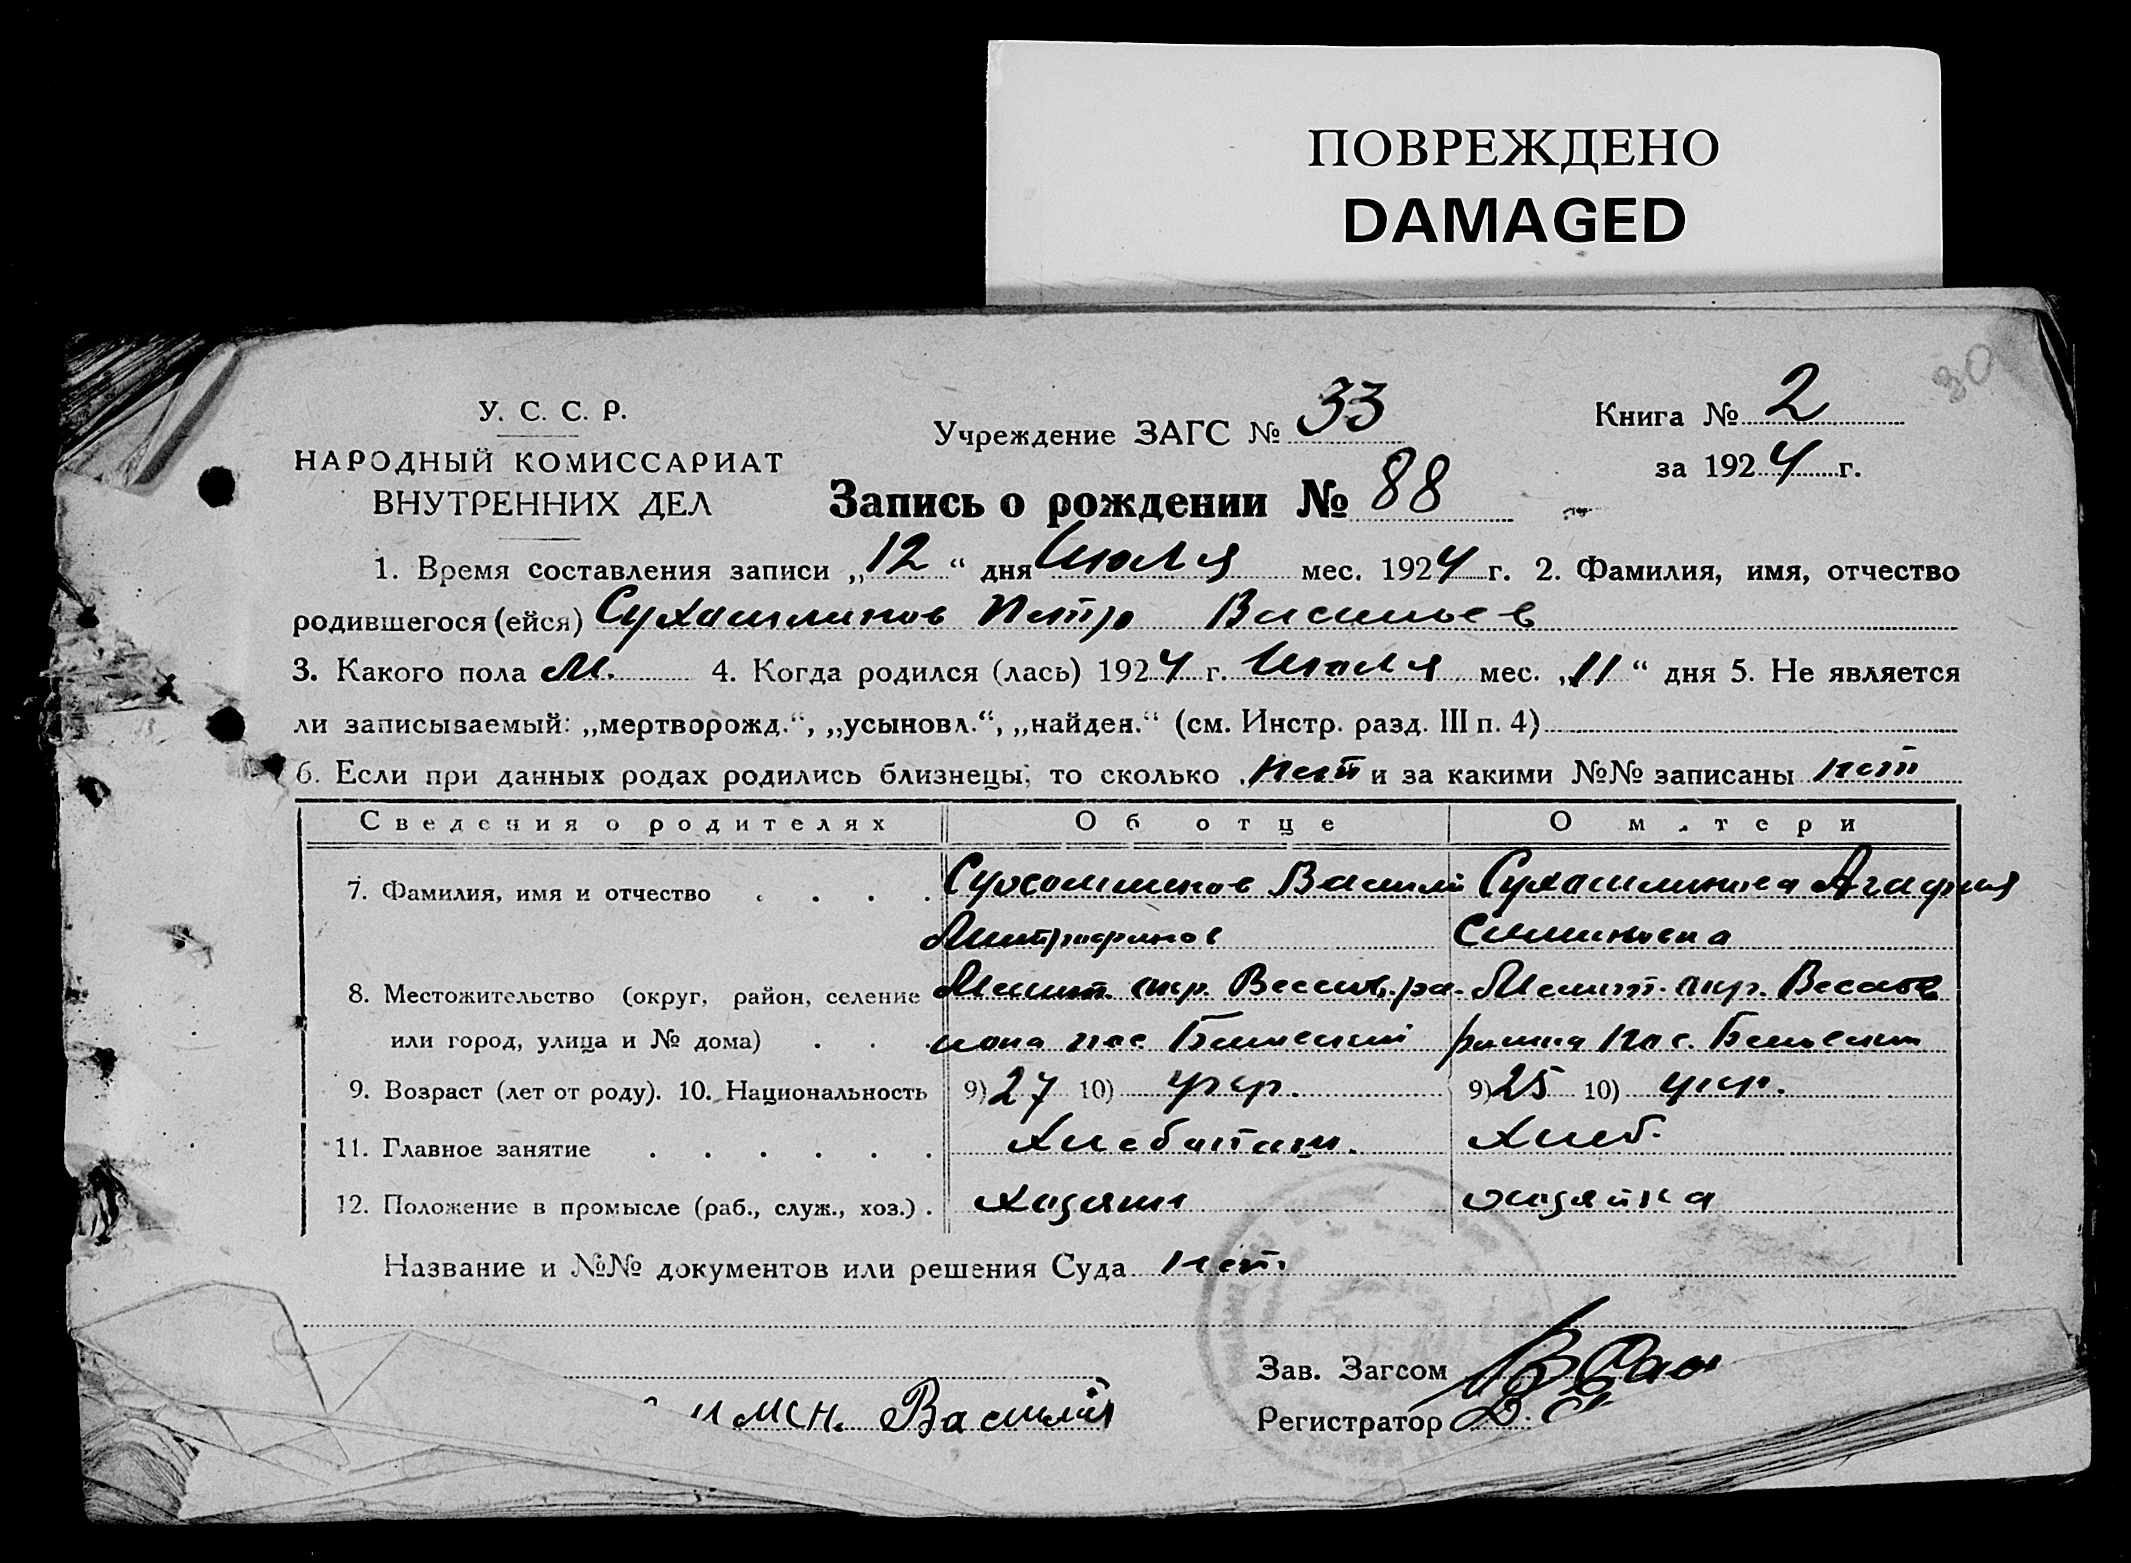 ПОВРЕЖДЕНО
DAMAGED
30
У. С. С. Р.
НАРОДНЫЙ КОМИССАРИАТ
ВНУТРЕННИХ ДЕЛ
Учреждение ЗАГС № 33
Книга № 2
за 1924 г.
Запись о рождении № 88
1. Время составления записи „12“ дня Июля мес. 1924 г. 2. Фамилия, имя, отчество
родившегося (ейся) Петро Васильев
3. Какого пола М. 4. Когда родился (лась) 1924 г. Июля мес. „11“ дня 5. Не является
ли записываемый: „мертворожд.“, „усыновл.“, „найден.“ (см. Инстр. разд. III п. 4)
6. Если при данных родах родились близнецы, то сколько нет и за какими №№ записаны нет
Сведения о родителях Об отце О матери
7. Фамилия, имя и отчество Василий Агафия
Митрофанов
8. Местожительство (округ, район, селение Мелит. окр. Весел. ра- Мелит. окр. Весел
или город, улица и № дома) иона пос. района пос.
9. Возраст (лет от роду). 10. Национальность 9) 27 10) укр. 9) 25 10) укр.
11. Главное занятие Хлебопаш. Хлеб.
12. Положение в промысле (раб., служ., хоз.) Хозяин хозяйка
Название и №№ документов или решения Суда нет.
Зав. Загсом
Василий
Регистратор